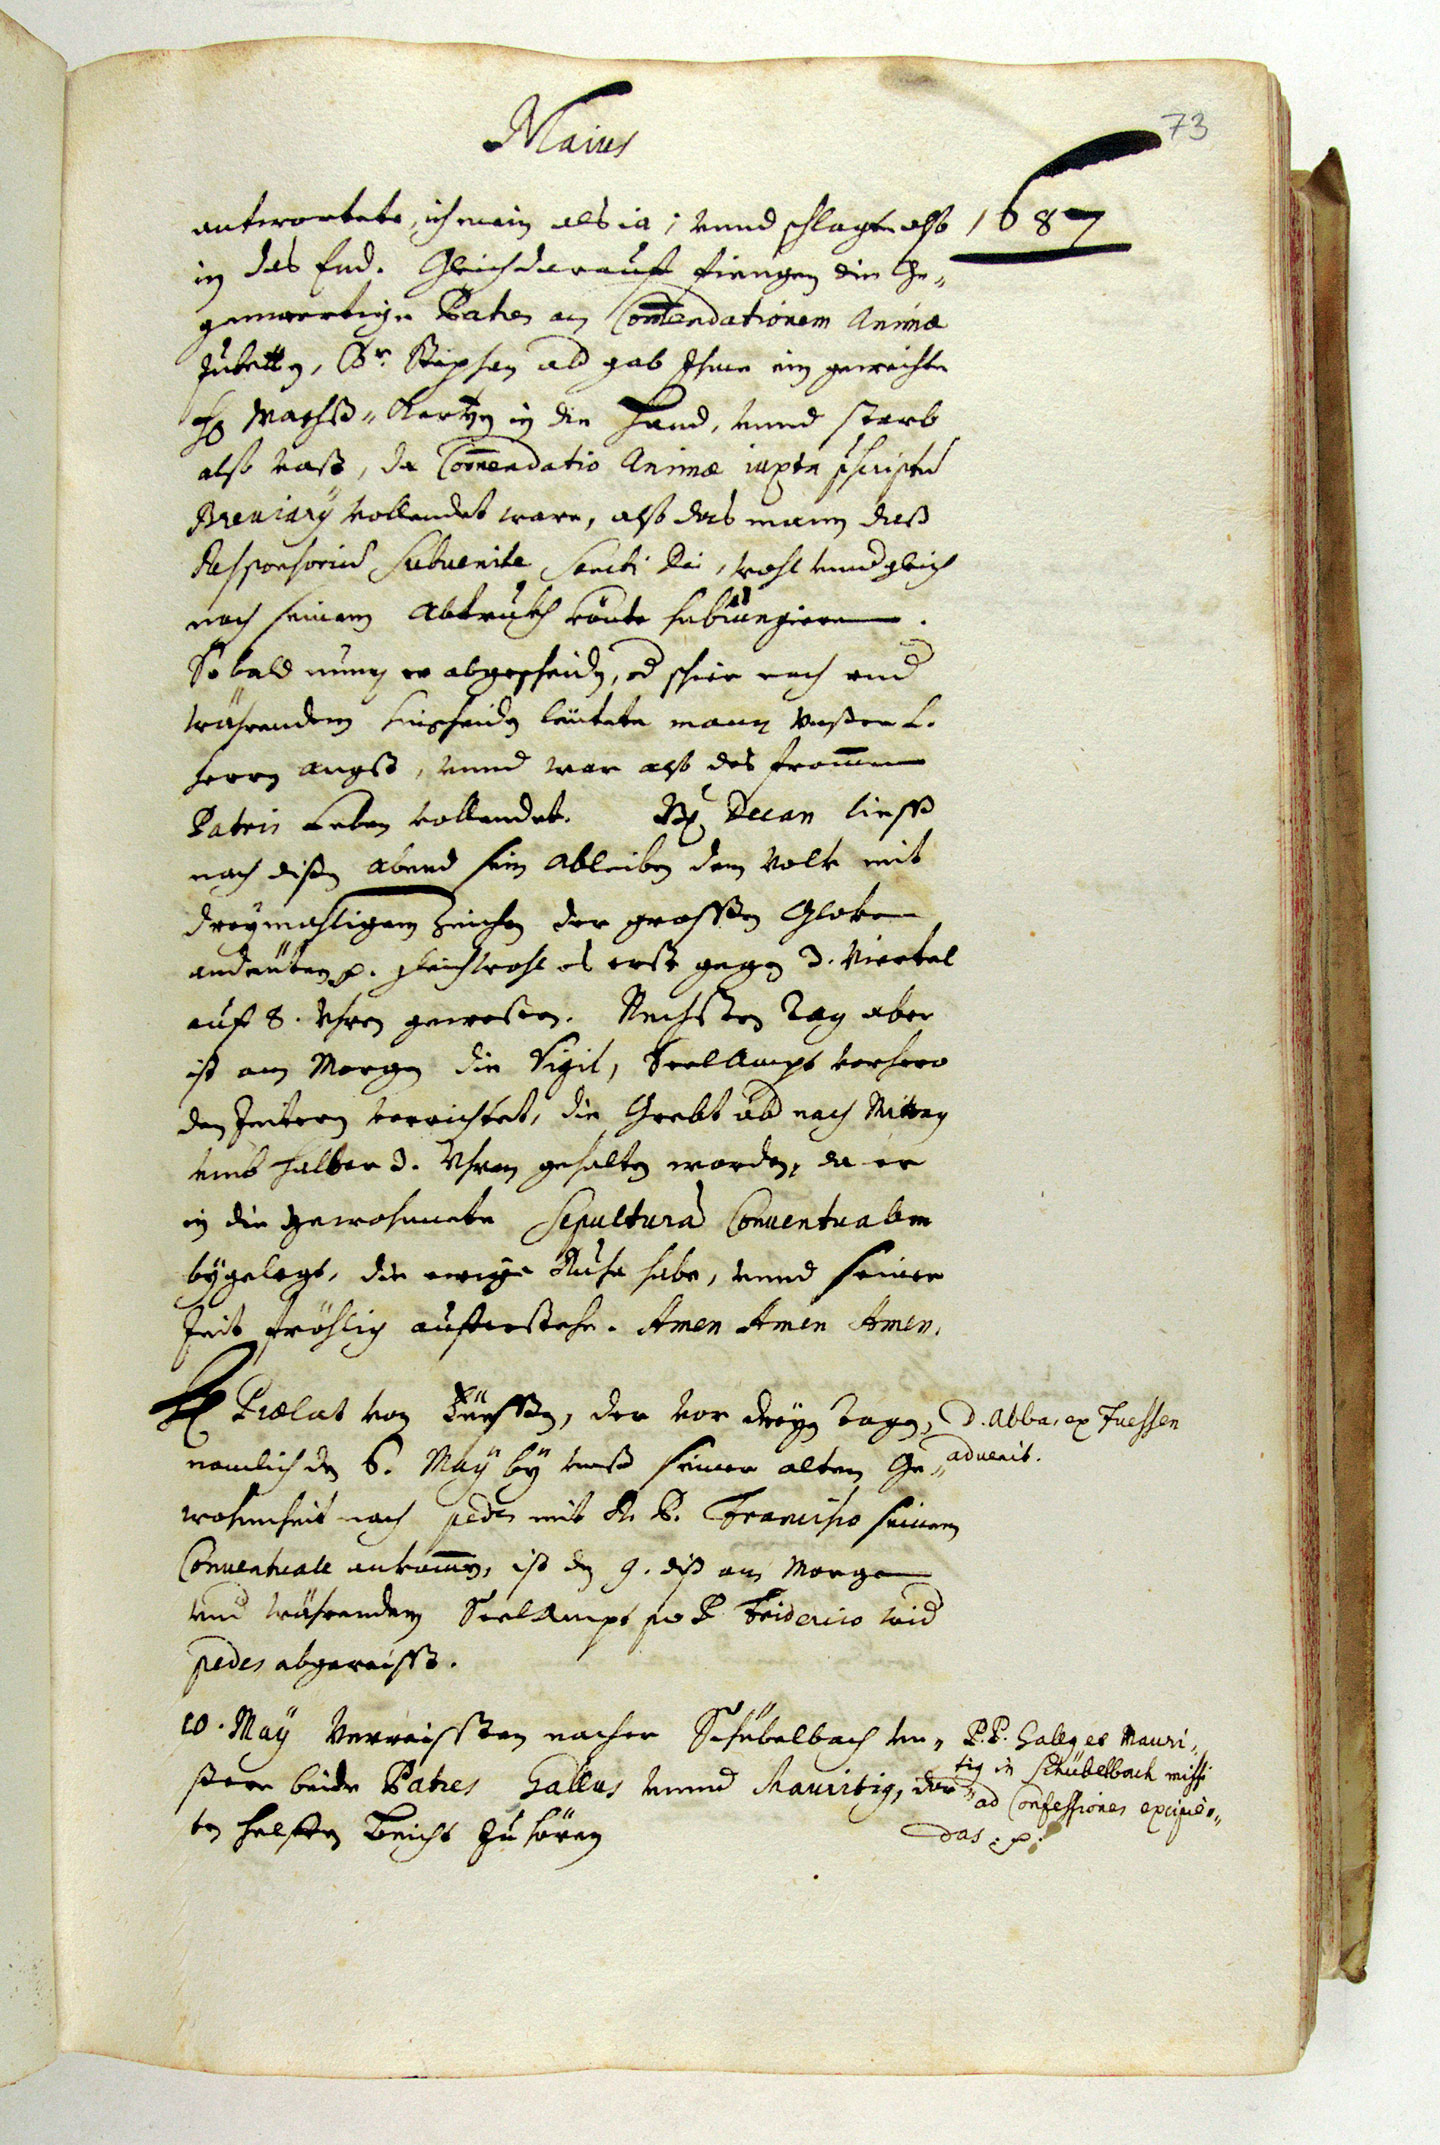 73
Maius
1687
antwortete, ich mein als ia; vnnd schlagte also
in das End. Gleich darauff fiengen die Ge-
genwertige Patres an Com̅endationem Animæ
Zubetten, Br. Stephan ald gab Ihme ein geweichte
Wachß-Kertzen in die Hand, vnnd starb
also vast, da Com̅endatio Animæ iuxta
Breviarÿ vollendet ware, also das mann daß
Responsoriu̅ Subuenite Sancti Dei, wohl vnnd gleich
nach seinem Abtruckh könte subiungieren.
So bald nunn er abgescheiden, od schier noch vnd
währendem hinscheiden leütete mann Vnßers L.
Herrn angst, vnnd war also des from̅en
Patris Leben vollendet. Decan liesse
nach dißem abend sein Ableiben dem Volk mit
dreymahligem Zeichen der grossen Gloken
andeüten p. gleichwohl es erst gegen 3. Viertel
auf 8. Vhren gewesen. Nechsten Tag aber
ist am Morgen die Vigil, SeelAmpt vorhero
den verrichtet, die Grebt abd nach Mittag
vmb halber 3. Vhren gehalten worden, da er
in die gewohnete Sepultura̅ Conuentualem
bÿgelegt, die ewige Ruhe habe, vnnd seiner
Zeit fröhlich aufferstehe. Amen Amen Amen.
Hr Prælat von Füessen, der vor dreÿen Tagen,
nemlich den 6. Maÿ bÿ vnß seiner alten Ge-
wohnheit nach pedes mit R. P. Francisco seinem
Conuentuale ankom̅en, ist den 9. diß am Morgen
vnd währendem SeelAmpt pro P. Friderico wid
pedes abgereisst.
D. Abbas ex Fuessen
aduenit.
10. Maÿ Verreissten nacher Schübelbach vn-
sere beide Patres Gallus vnnd Mauritius, dor-
ten helffen Beicht Zu hören
P.P. Gallus et Mauri-
tius in Schübelbach missi
ad Confessiones excipien-
das. p.